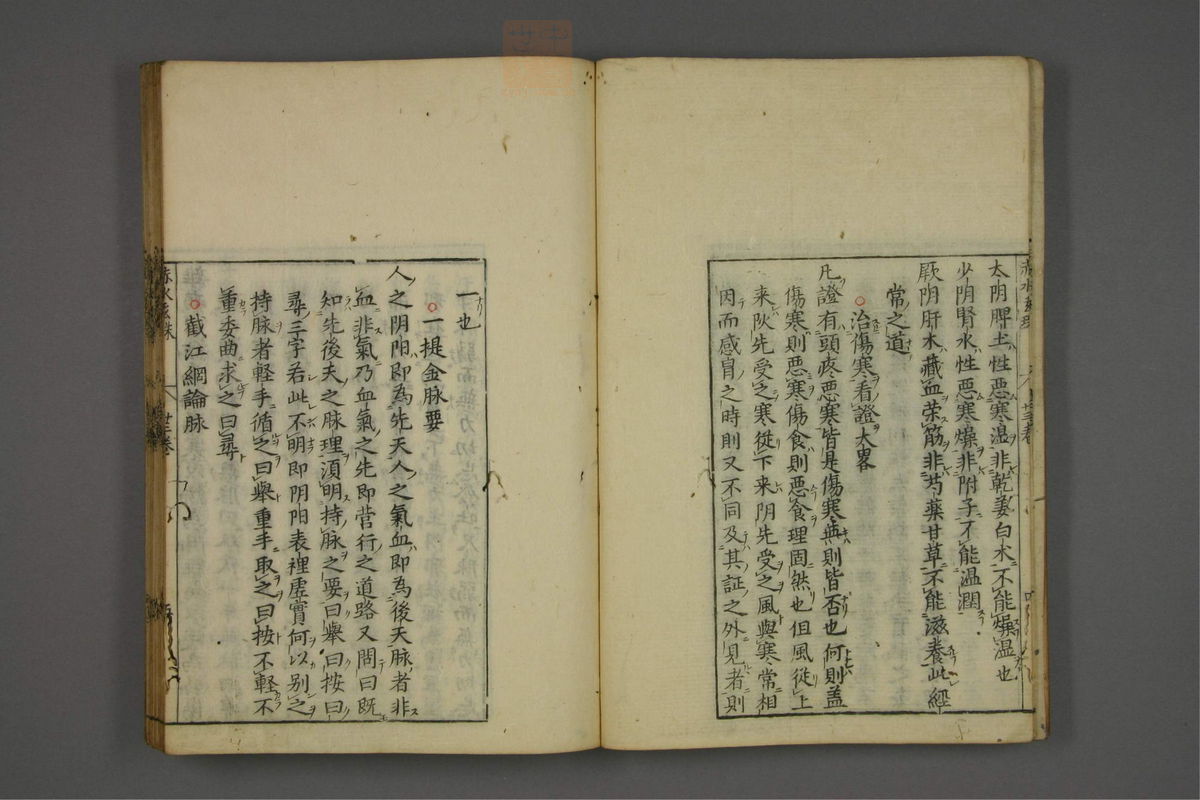 太阴脾土性悪寒温非乾姜白木不能燥温也
少阴腎水性悪寒燥非附子不能温潤
厥阴肝木藏血荣筋非芍薬甘草不能滋養此経
常之道
治傷寒看證大畧
凡證有頭疼悪寒皆是傷寒無則皆否也何則盖
傷寒則悪寒傷食則悪食理固然也但風従上
来阦先受之寒従下来阴先受之風與寒常相
因而感冐之時則又不同及其証之外見者則
一也
一提金脉要
人之阴阳即為先天人之氣血即為後天脉者非
血非氣乃血氣之先即営行之道路又問曰既
知先後夫之脉理湏明持脉之要曰舉曰按曰
尋三字若此不明即阴阳表裡虚實何以别之
持脉者軽手循之曰舉重手取之曰按不軽不
重委曲求之曰尋
截江網論脉